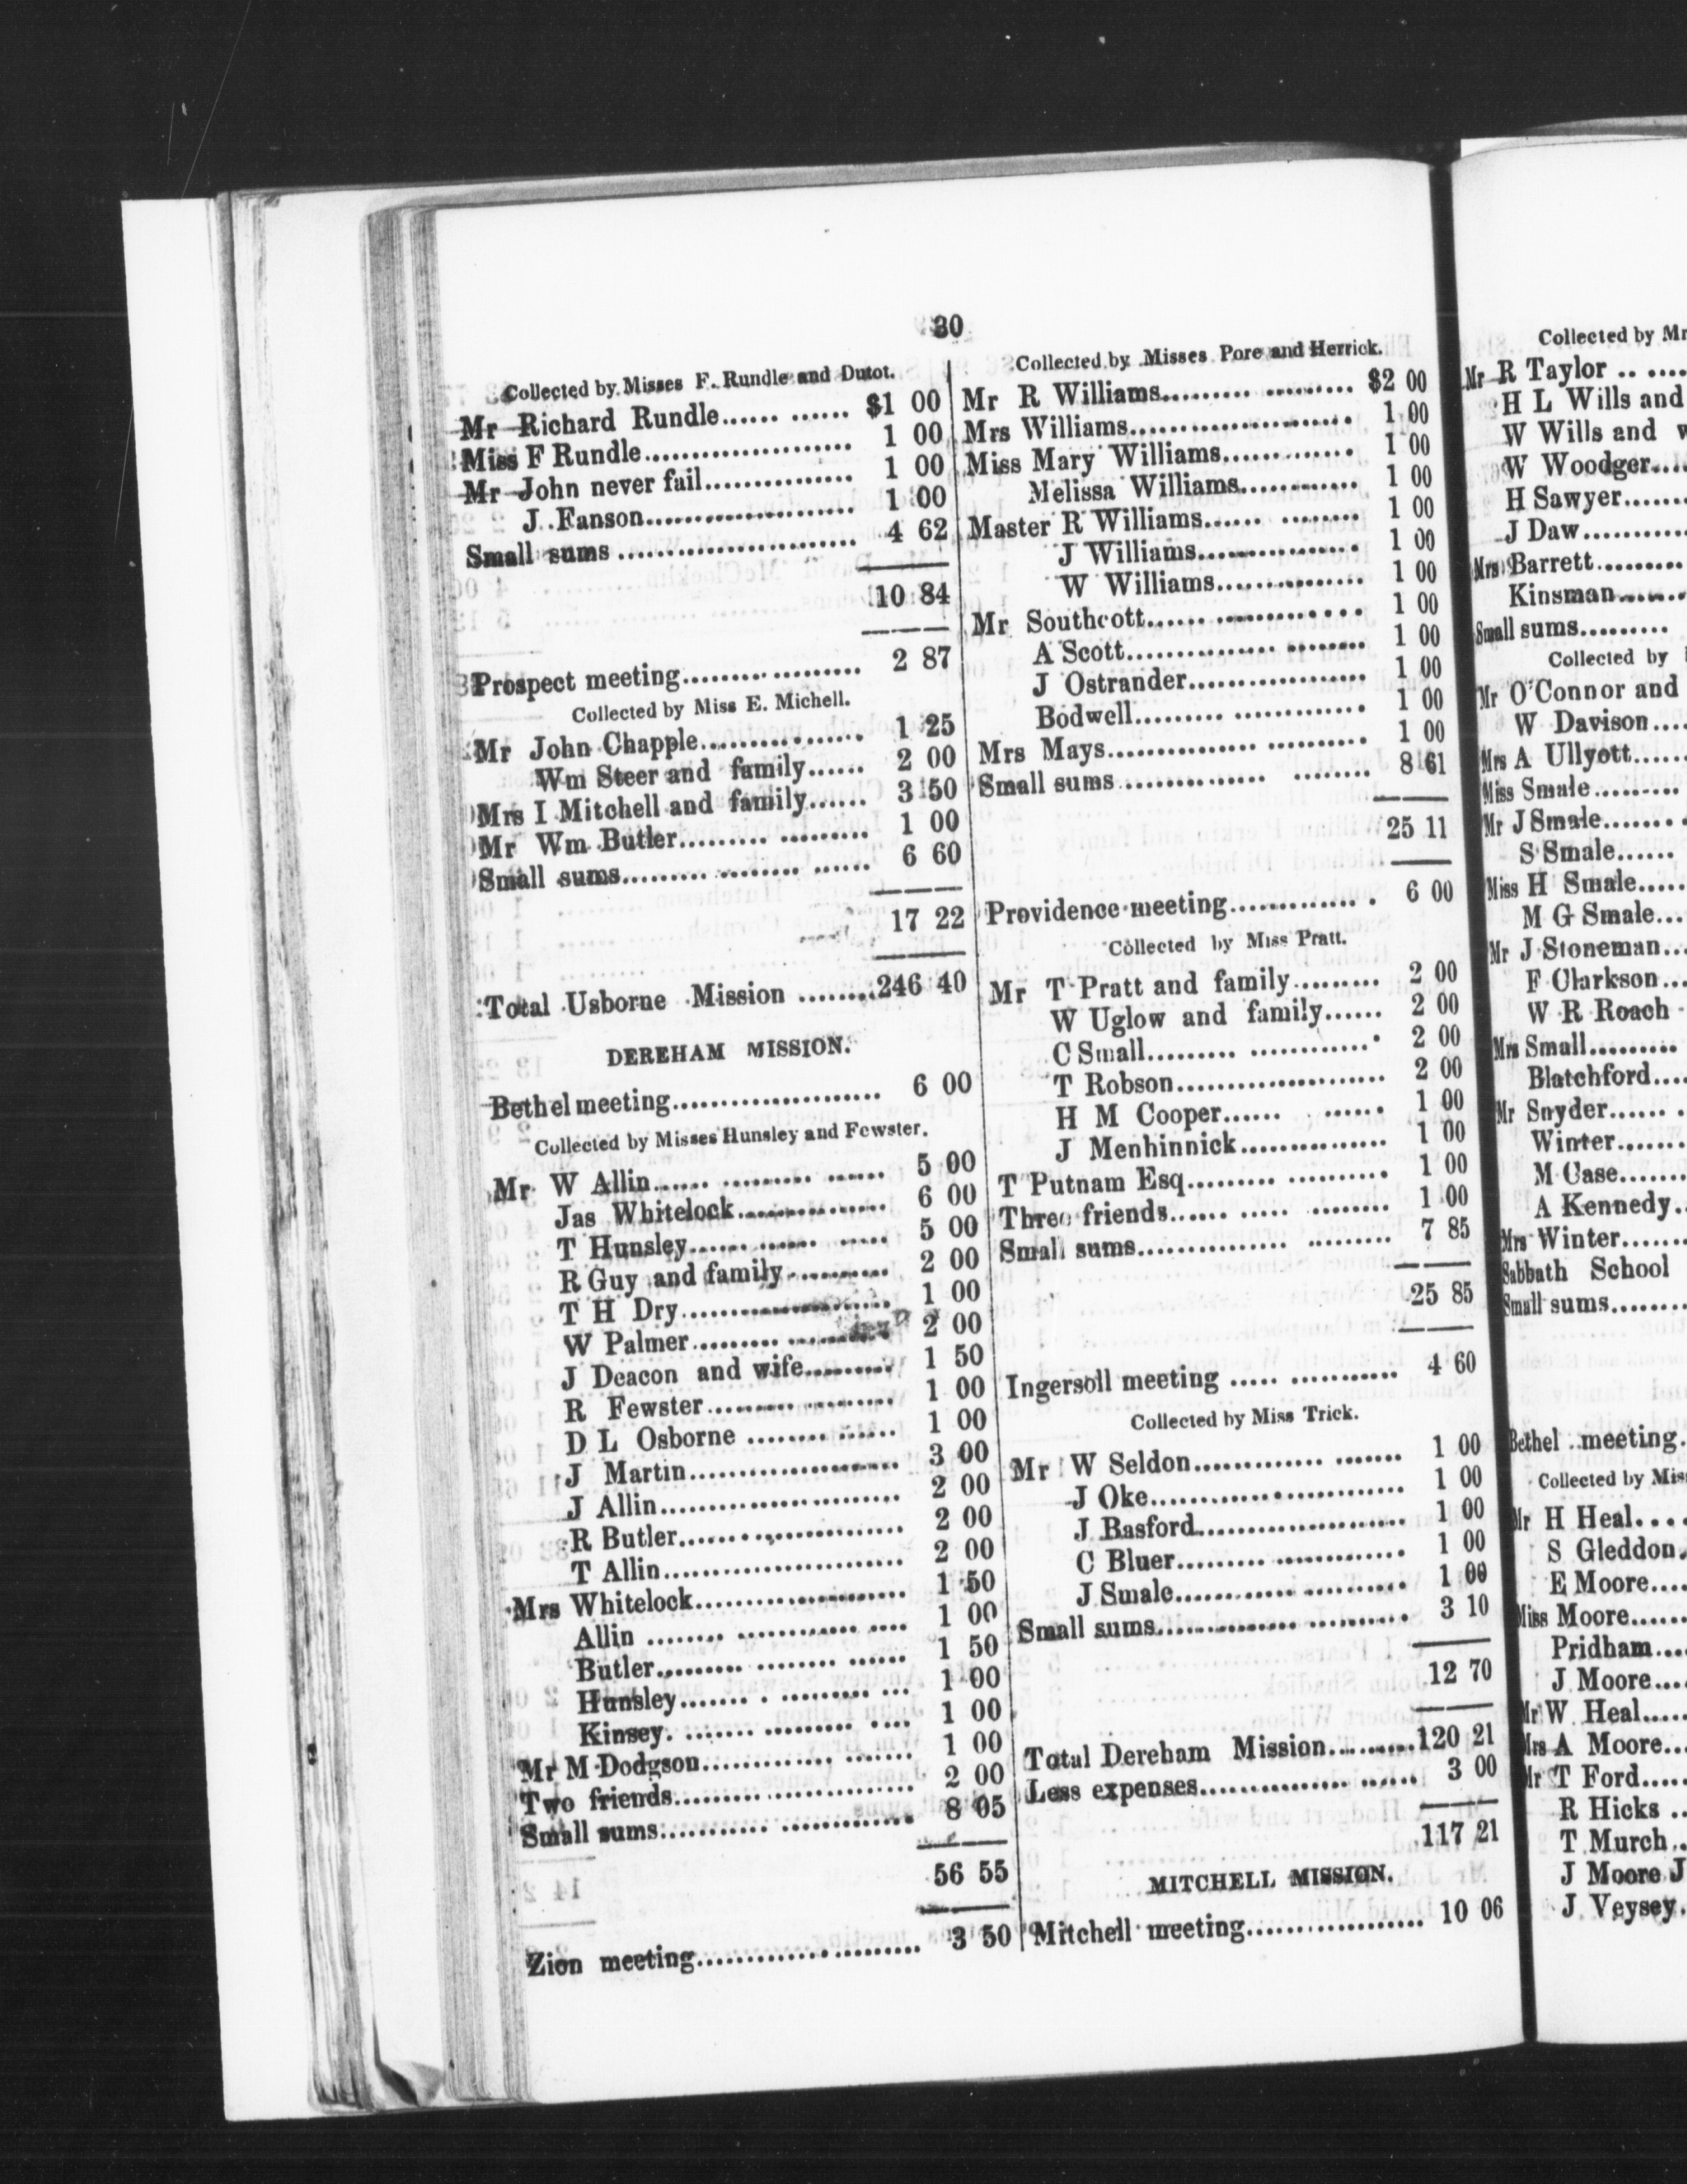 30
Collected by Misses F. Rundle and Dutot.
Mr Richard Rundle...... ...... $1 00
Miss F Rundle..................... 1 00
Mr John never fail............... 1 00
J Fanson..................... 1 00
Small sums ........................ 4 62
10 84
Prospect meeting.................. 2 87
Collected by Miss E. Michell.
Mr John Chapple................ 1 25
Wm Steer and family...... 2 00
Mrs I Mitchell and family...... 3 50
Mr Wm Butler......... ......... 1 00
Small sums......... ........ ...... 6 60
17 22
Total Usborne Mission ........246 40
DEREHAM MISSION.
Bethel meeting..................... 6 00
Collected by Misses Hunsley and Fewster.
Mr W Allin...... ......... ...... 5 00
Jas Whitelock............... 6 00
T Hunsley...... ...... ..... 5 00
R Guy and family.......... 2 00
T H Dry..................... 1 00
W Palmer......... .......... 2 00
J Deacon and wife......... 1 50
R Fewster......... ......... 1 00
D L Osborne ........ ...... 1 00
J Martin..................... 3 00
J Allin........................ 2 00
R Butler....................... 2 00
T Allin........................ 2 00
Mrs Whitelock..................... 1 50
Allin ........ ............ .... 1 00
Butler......... ........ ...... 1 50
Hunsley....... . ......... ... 1 00
Kinsey. ....... ......... .... 1 00
Mr M Dodgson............. ....... 1 00
Two friends........................ 2 00
Small sums........... ............. 8 05
56 55
Zion meeting....................... 3 50
Collected by Misses Pore and Herrick.
Mr R Williams......... ......... $2 00
Mrs Williams....................... 1 00
Miss Mary Williams............. 1 00
Melissa Williams............ 1 00
Master R Williams...... ........ 1 00
J Williams................ 1 00
W Williams............... 1 00
Mr Southcott...... ............... 1 00
A Scott............... ........ 1 00
J Ostrander.................. 1 00
Bodwell......... ............. 1 00
Mrs Mays............... .......... 1 00
Small sums ............... ........ 8 61
25 11
Providence meeting............. . 6 00
Collected by Miss Pratt.
Mr T Pratt and family......... 2 00
W Uglow and family...... 2 00
C Small......... ............. 2 00
T Robson...................... 2 00
H M Cooper...... ...... 1 00
J Menhinnick............... 1 00
T Putnam Esq......... .......... 1 00
Three friends...... ..... ........ 1 00
Small sums............... ......... 7 85
25 85
Ingersoll meeting ..... ........... 4 60
Collected by Miss Trick.
Mr W Seldon............. ....... 1 00
J Oke.......................... 1 00
J Basford..................... 1 00
C Bluer......... ............. 1 00
J Smale............ .......... 1 00
Small sums............... .......... 3 10
12 70
Total Dereham Mission.........120 21
Less expenses............... ...... 3 00
117 21
MITCHELL MISSION.
Mitchell meeting.................. 10 06
Collected by
Mr R Taylor .. .....
H L Wills and
W Wills and
W Woodger....
H Sawyer.......
J Daw...........
Mrs Barrett.........
Kinsman.......
Small sums.........
Collected by
Mr O'Connor and
W Davison....
Mrs A Ullyott......
Miss Smale.........
Mr J Smale........
S Smale......
Miss H Smale.....
M G Smale...
Mr J Stoneman...
F Clarkson...
W R Roach
Mrs Small.........
Blatchford....
Mr Snyder...... .
Winter.......
M Case.......
A Kennedy..
Mrs Winter.......
Sabbath School
Small sums........
Bethel meeting.
Collected by
Mr H Heal....
S Gleddon.
E Moore....
Miss Moore......
Pridham....
J Moore....
Mr W Heal.....
Mrs A Moore...
Mr T Ford.....
R Hicks ..
T Murch..
J Moore J
J Veysey.